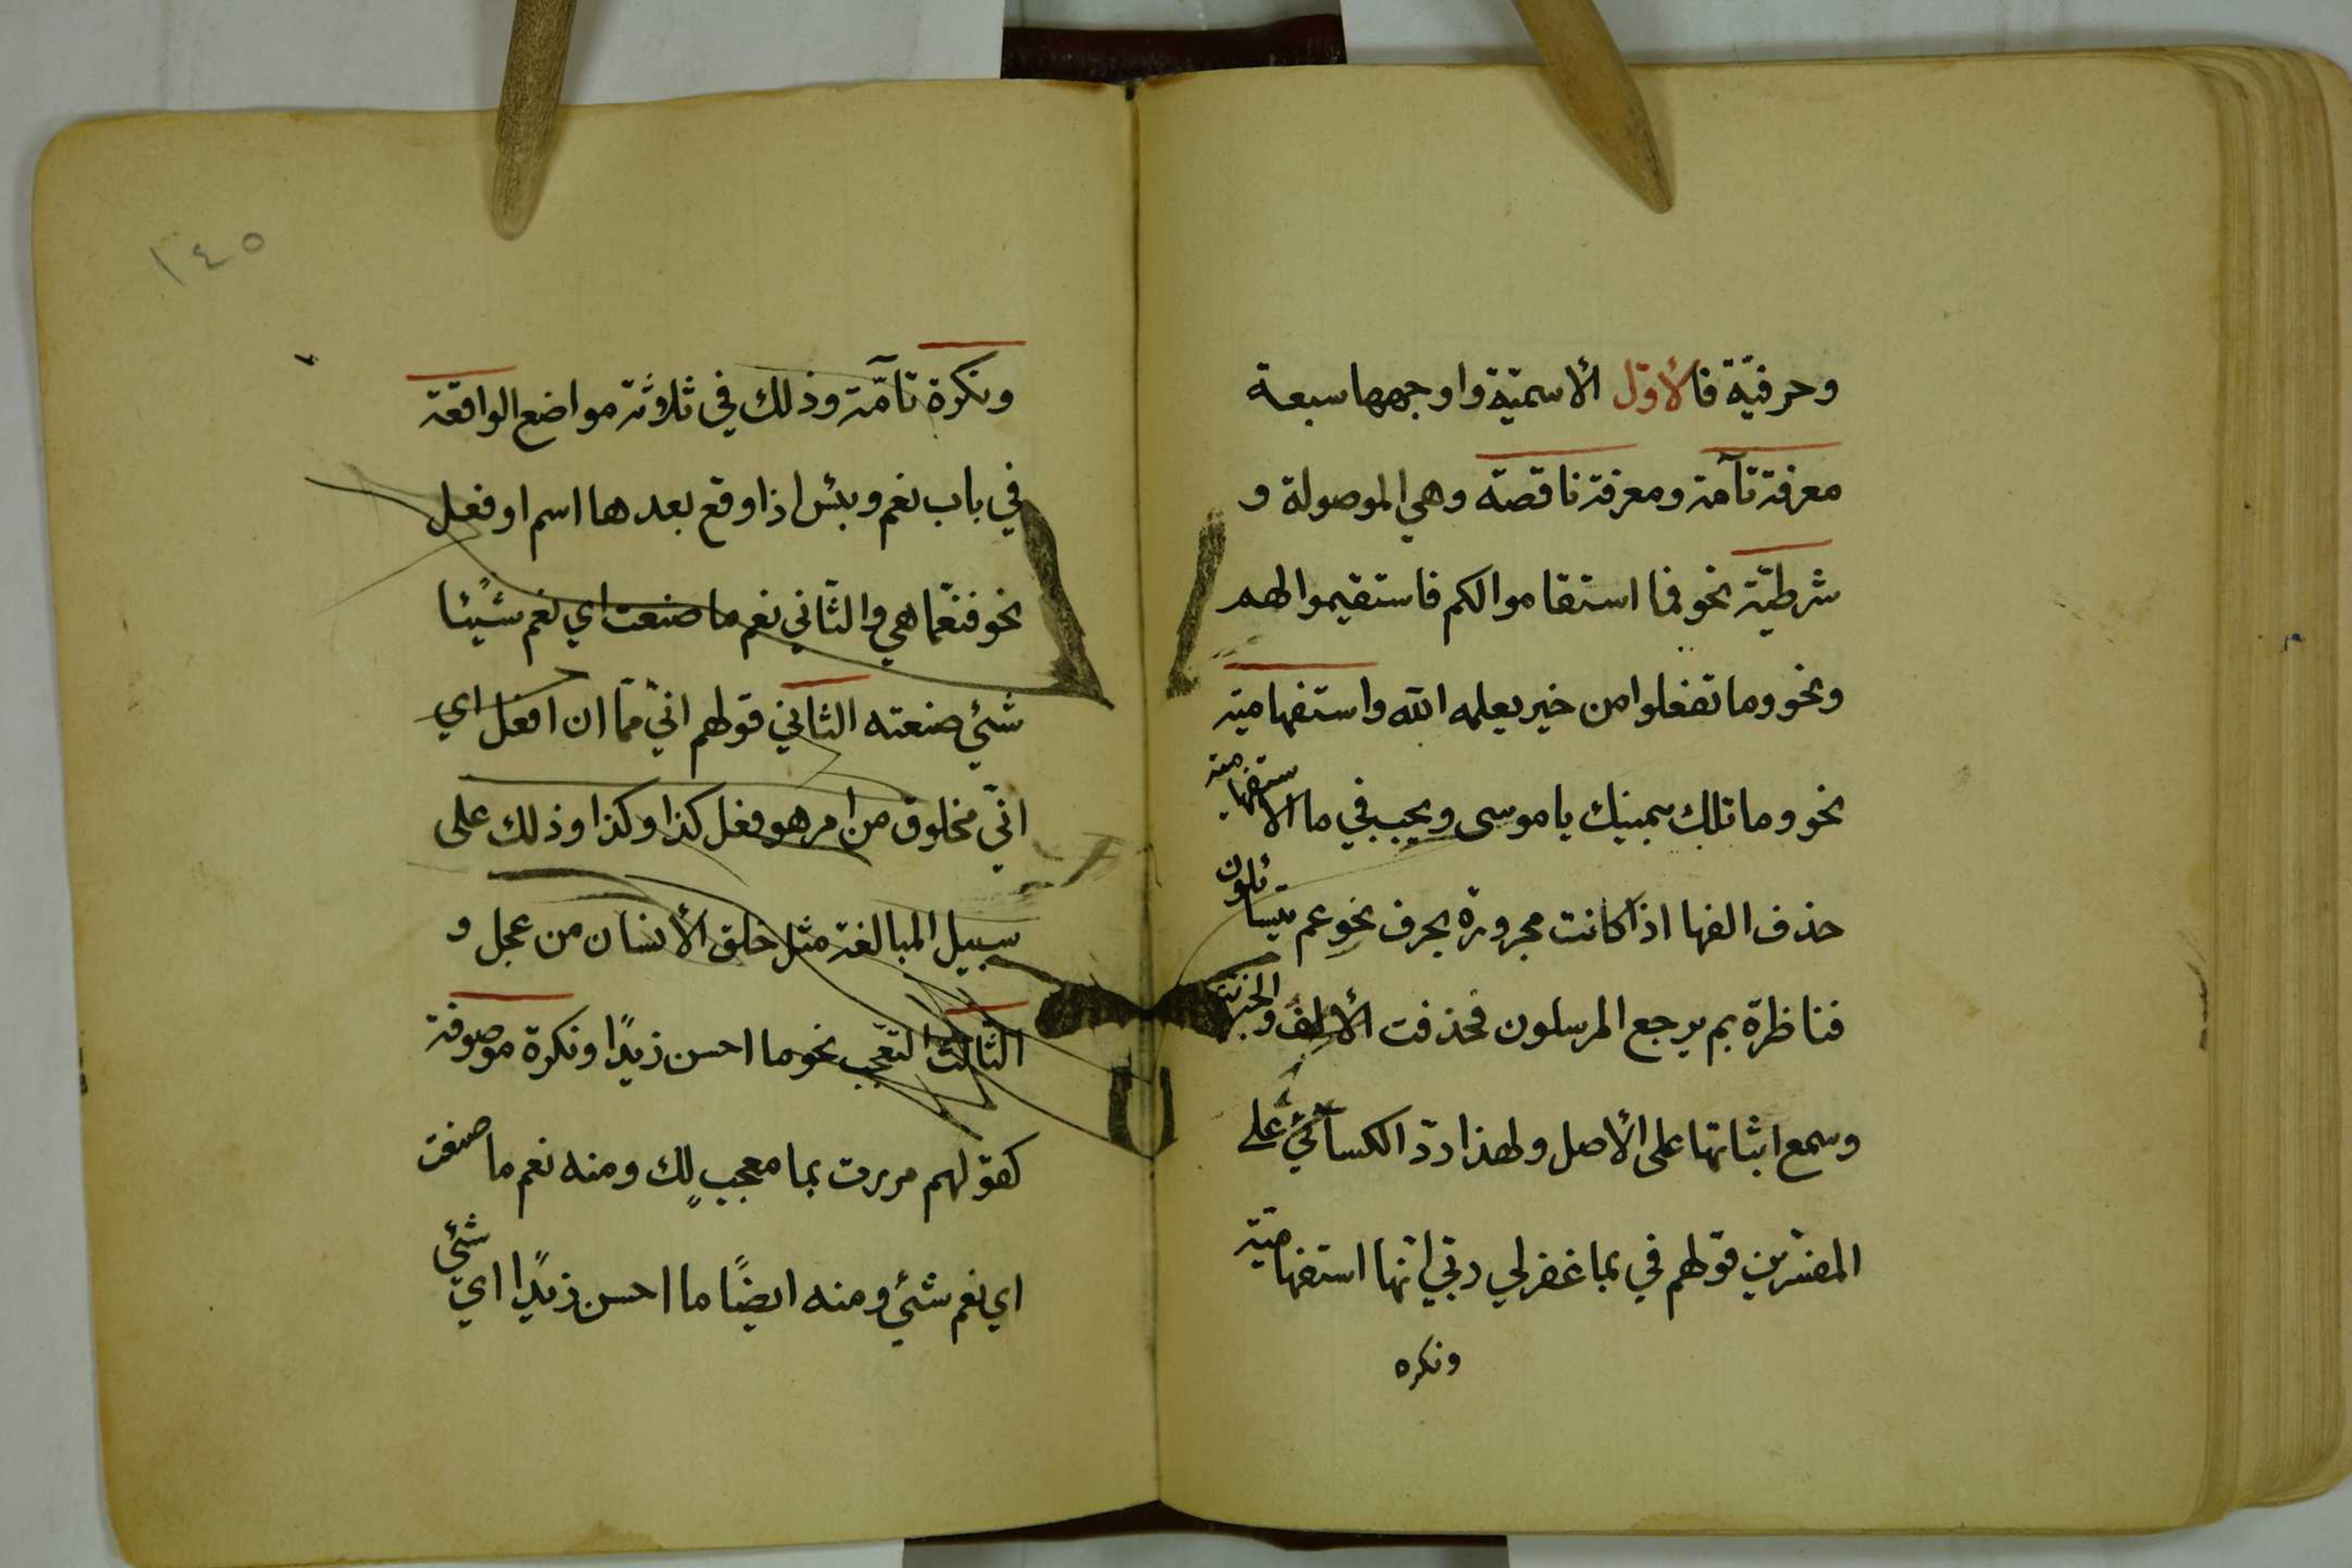 وحرفيّة فالأوّل الأسميّة واوجهها سبعة
معرفة تآمة ومعرفة ناقصة وهي الموصولة و
شرطيّة نحو فما استقاموا لكم فاستقيموا لهم
ونحو وما تفعلوا من خير يعلمه الله واستفهامية
نحو وما تلك بيمينك يا موسى ويجب في ما الاستفهامية
حذف الفها اذا كانت مجرورة بحرف نحو عم يتسائلون
فناظرة بم يرجع المرسلون فحذفت الألف
وسمع اثباتها على الأصل ولهذا ردّ الكسآئيّ على
المفسّرين قولهم في بما غفر لي ربّي انّها استفهاميّة
ونكره
١٤٥
ونكرة تآمّة وذلك في ثلاثة مواضع الواقعة
في باب نعم وبئس اذا وقع بعدها اسم او فعل
نحو فنعمّا هي والثّاني نعم ما صنعت اي نعم شيئًا
شئي صنعته الثاني قولهم انّي ممّا ان افعل اي
انّي مخلوق من امر هو فعل كذا وكذا وذلك على
سبيل المبالغة مثل خلق الأنسان من عجل و
الثّالث التعجّب نحو ما احسن زيدًا ونكرة موصوفة
كقولهم مررت بما معجبٍ لك ومنه نعم ما صنعت
اي نعم شئي ومنه ايضًا ما احسن زيدًا اي شئي